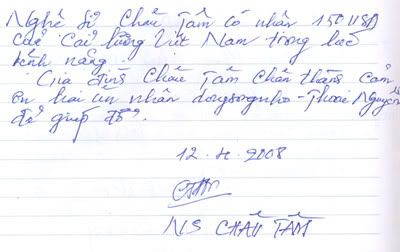 Nghệ sĩ Châu Tâm có nhận 150 USD
của Cải lương Việt Nam trong lúc
bệnh nặng.
Gia đình Châu Tâm chân thành cảm
ơn hai ân nhân dongsongnho - Thoai Nguyễn
đã giúp đỡ.
12.4.2008
NS CHÂU TÂM